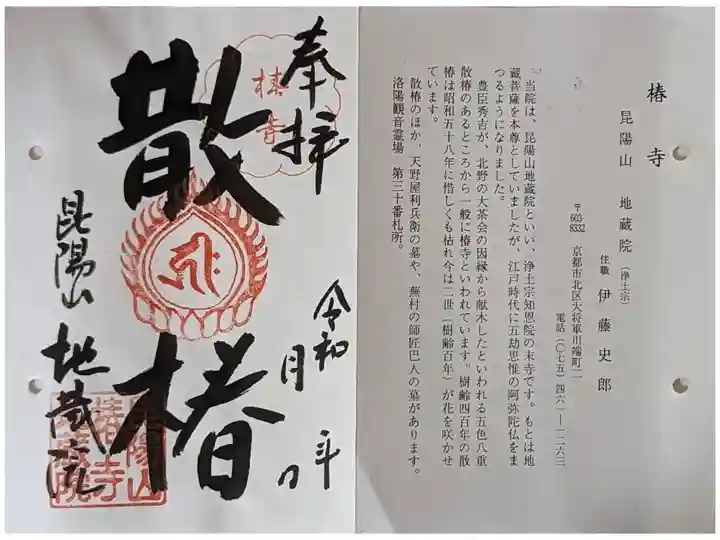 奉拝
椿寺
散椿
令和 年 月 日
昆陽山 地蔵院
椿寺
昆陽山 地蔵院（浄土宗）
住職 伊藤史郎
〒603-8332 京都市北区大将軍川端町二
電話（〇七五）四六一―一二六三
当院は、昆陽山地蔵院といい、浄土宗知恩院の末寺です。もとは地
蔵菩薩を本尊としていましたが、江戸時代に五劫思惟の阿弥陀仏をま
つるようになりました。
豊臣秀吉が、北野の大茶会の因縁から献木したといわれる五色八重
散椿のあるところから一般に椿寺といわれています。樹齢四百年の散
椿は昭和五十八年に惜しくも枯れ今は二世（樹齢百年）が花を咲かせ
ています。
散椿のほか、天野屋利兵衛の墓や、蕪村の師匠巴人の墓があります。
洛陽観音霊場 第三十番札所。